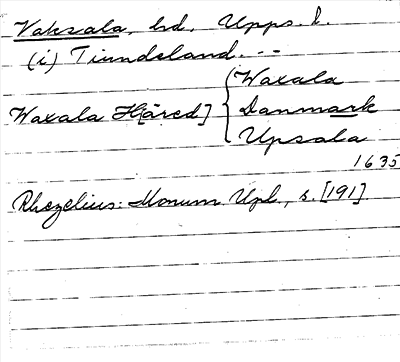 Vaksala, hd, Upps. l.
(i) Tiundeland. - -
Waxala
Waxala H[äred] { Danmark
Upsala
1635
Rhezelius: Monum. Upl., s. [191].